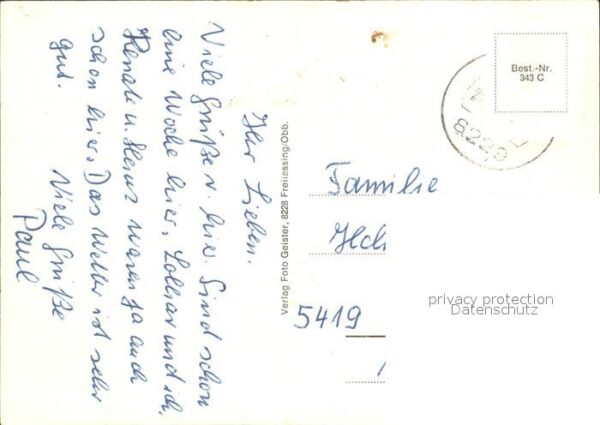 Ihr Lieben.
Viele Grüße v. hier. Sind schon
eine Woche hier, Lothar und ich,
Renate u. Heinz waren ja auch
schon hier. Das Wetter ist sehr
gut.
Viele Grüße
Paul
Verlag Foto Geister, 8228 Freilassing/Obb.
Best.-Nr.
343 C
8229
Familie
5419
privacy protection
Datenschutz